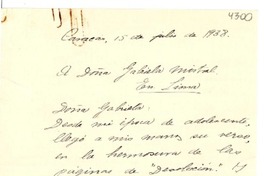 4300
Caracas, 15 de julio de 1938.
A Doña Gabriela Mistral.
En Lima
Doña Gabriela:
Desde mi época de adolescente,
llegó a mis manos su verso,
en la hermosura de las
páginas de "Desolación". Y